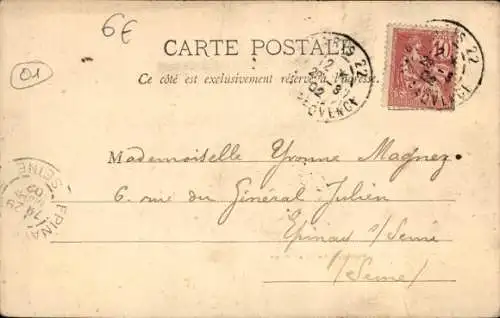 6€
01
CARTE POSTALE
Ce côté est exclusivement réservé à l'adresse.
PARIS 22
02
PROVENCE
10
Mademoiselle Yvonne Magnez
6. rue du Général Julien
Epinay s/Seine
(Seine)
EPINAY
SEINE